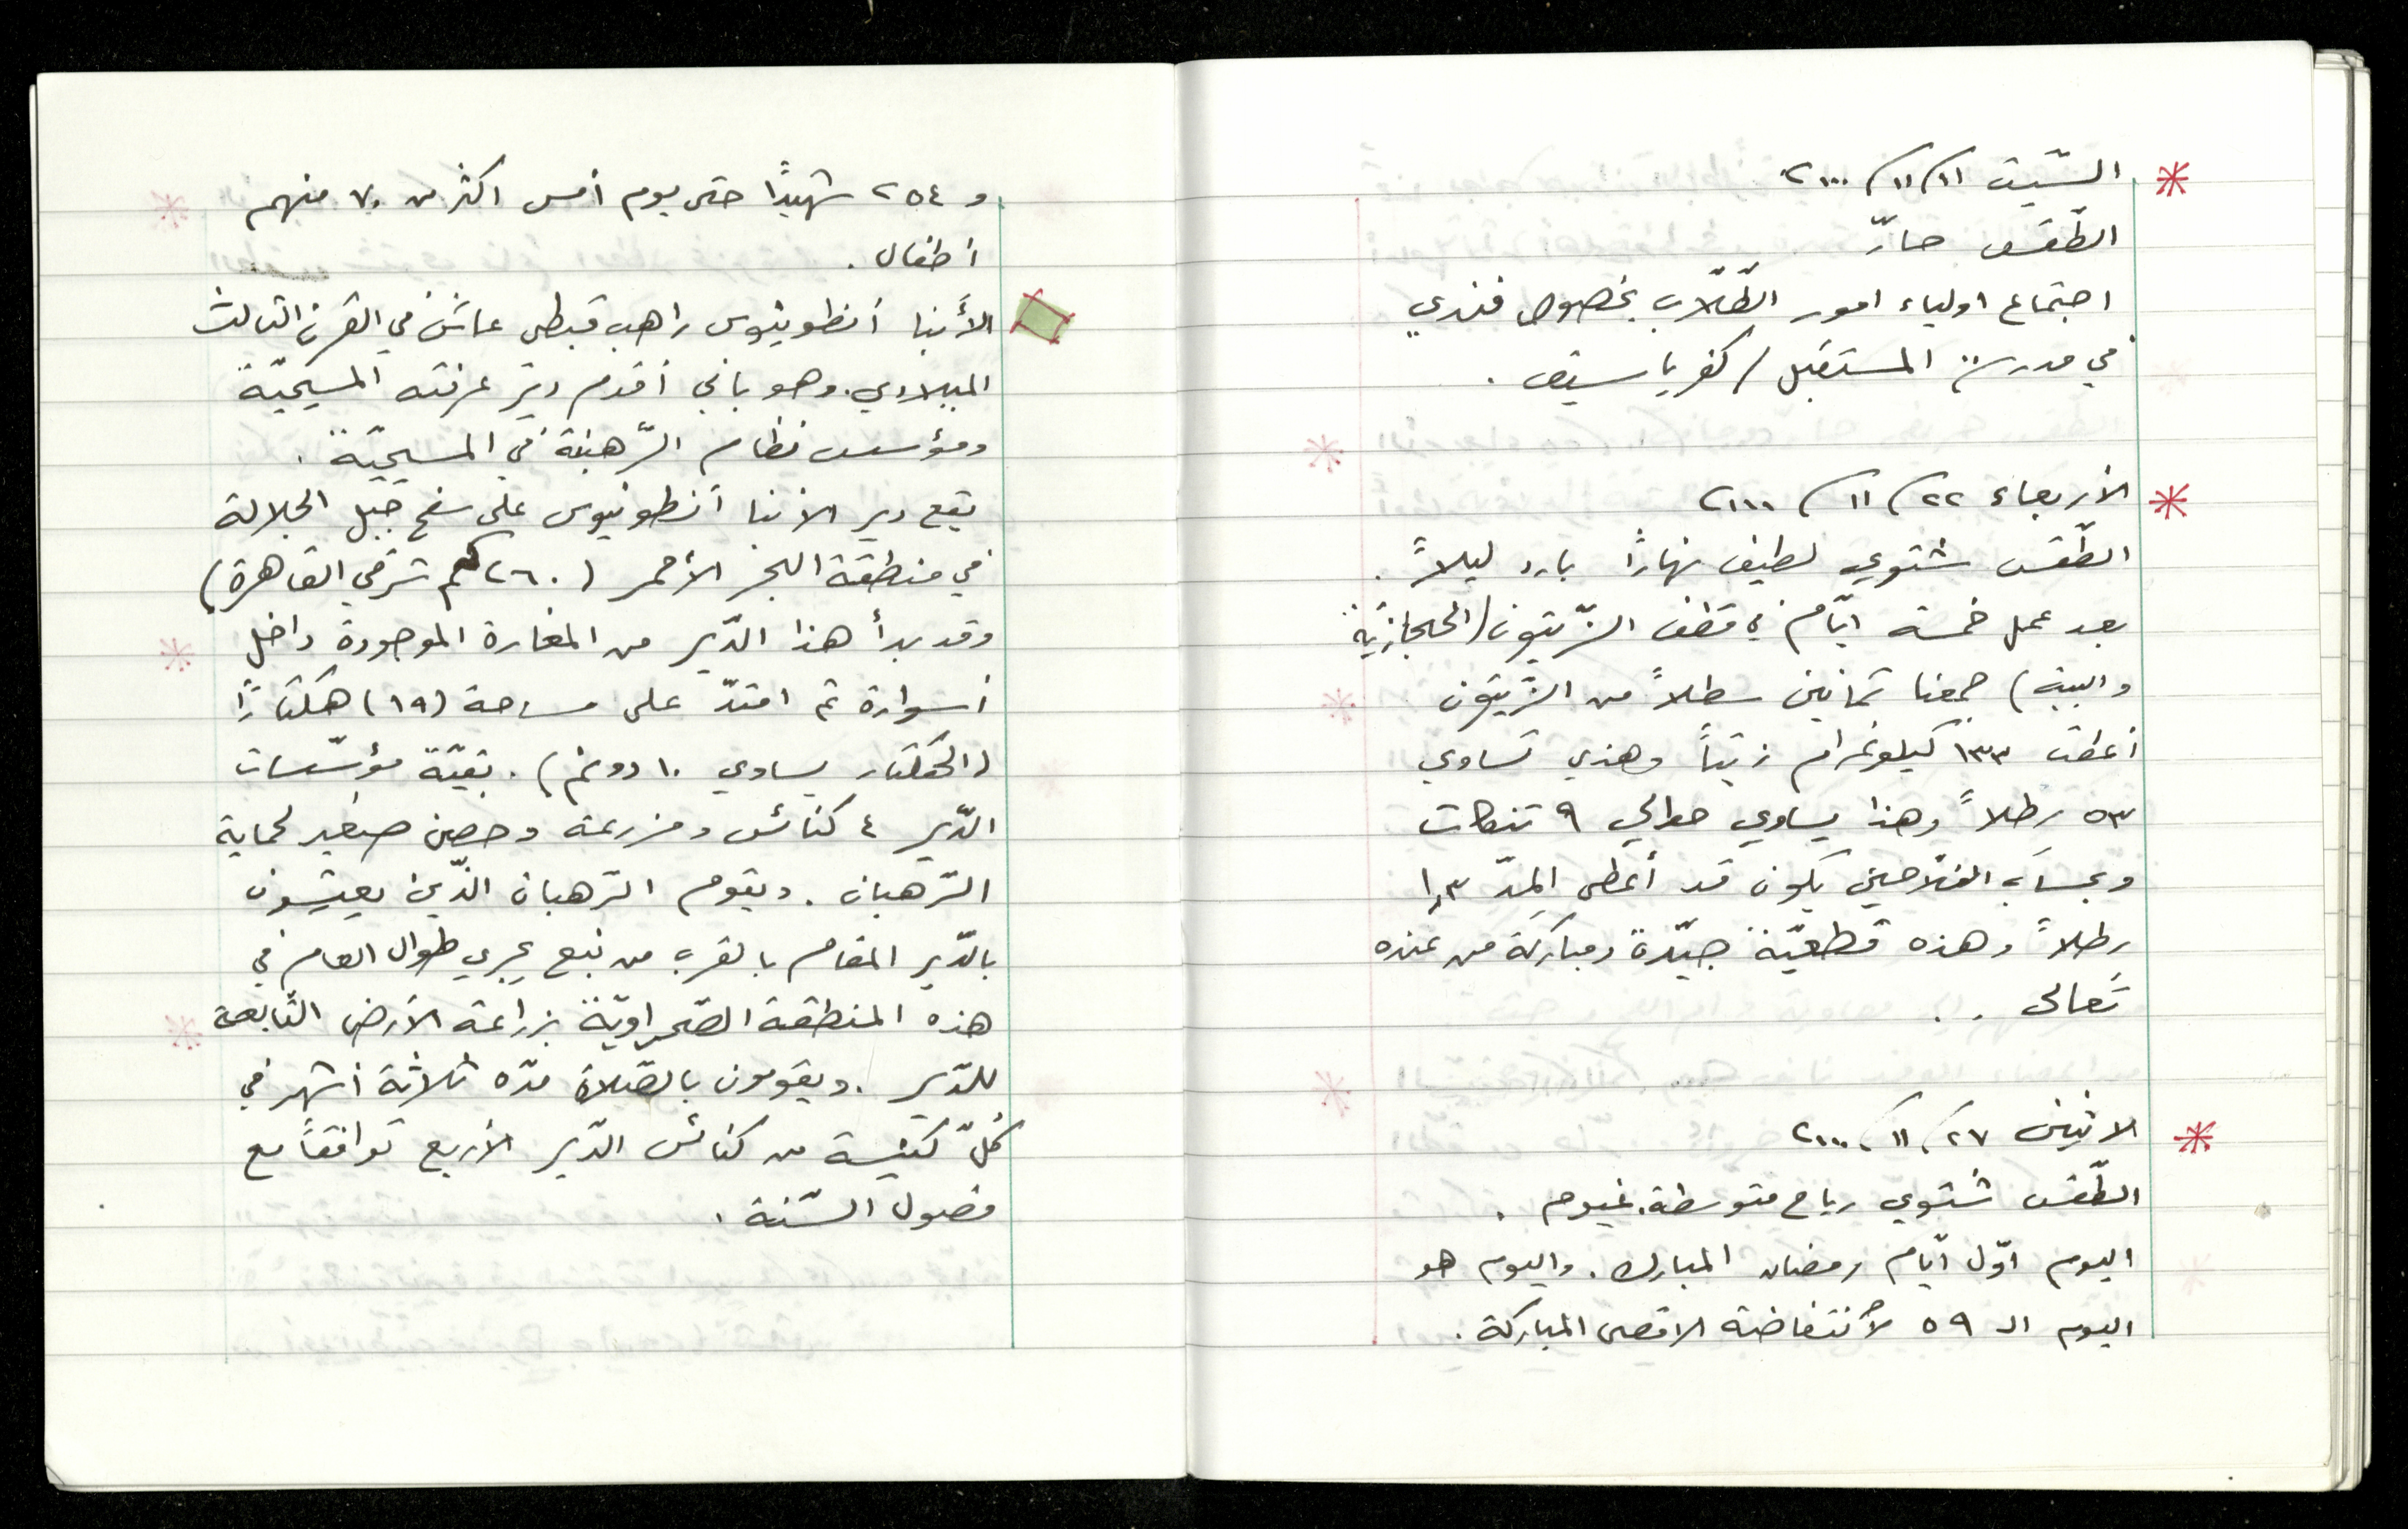 السّبت ١١/١١/٢٠٠٠
الطّقس حارّ
اجتماع اولياء امور الطّلّاب بخصوص فندي
في مدرسة المستقبل / كفرياسيف .
الأربعاء ٢٢/١١/٢٠٠٠
الطّقس شتوي لطيف نهارًا بارد ليلاً .
بعد عمل خمسة ايّام في قطف الزّيتون (الحجازيّة
والبية) جمعنا ثمانين سطلاً من الزّيتون
أعطت ١٣٣ كيلوغرام زيتاً وهذي تساوي
٥٣ رطلاً وهذا يساوي حوالي ٩ تنكات
وبحساب الفلّاحين يكون قد أعطى المدّ ١,٣
رطلاً وهذه قطعيّة جيّدة ومباركة من عنده
تَعالى . .
الاثنين ٢٧/١١/٢٠٠٠
الطّقس شتوي رياح متوسطة. غيوم .
اليوم اوّل ايّام رمضان المبارك . واليوم هو
اليوم الـ ٥٩ لأنتفاضة الاقصى المباركة .
و ٢٥٤ شهيدًا حتى يوم أمس اكثر من ٧٠ منهم
أطفال .
الأنبا أنطونيوس راهب قبطي عاش في القرن الثالث
الميلادي. وهو باني أقدم دير عرفته المسيحيّة
ومؤسس نظام الرّهبنة في المسيحيّة .
يقع دير الأنبا أنطونيوس على سفح جبل الجلالة
في منطقة البحر الأحمر (٢٦٠ كم شرقي القاهرة)
وقد بدأ هذا الدّير من المغارة الموجودة داخل
أسواره ثم امتدّ على مساحة (١٩) هكتارًا
(الهكتار يساوي ١٠ دونم) . بقيّة مؤسّسات
الدّير ٤ كنائس ومزرعة وحصن صغير لحماية
الرّهبان . ويقوم الرّهبان الذّين يعيشون
بالدّير المقام بالقرب من نبع يجري طوال العام في
هذه المنطقة الصّحراويّة بزراعة الأرض التّابعة
للدّير . ويقومون بالصّلاة مدّه ثلاثة أشهر في
كُلّ كنيسة من كنائس الدّير الأربع توافقاً مع
فصول السّنة .